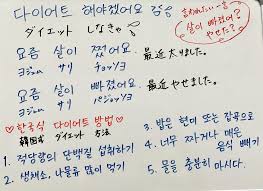 다이어트 해야겠어요
ダイエット しなきゃ。
言われたい一言
살이 빠졌어?
やせた?
요즘 살이 쪘어요. 最近太りました。
ヨジュム サリ チョッソヨ
요즘 살이 빠졌어요. 最近やせました。
ヨジュム サリ パジョッソヨ
한국식 다이어트 방법
韓国式 ダイエット 方法
1. 적당량의 단백질 섭취하기
2. 생채소, 나물류 많이 먹기
3. 밥은 현미 또는 잡곡으로
4. 너무 짜거나 매운 음식 빼기
5. 물을 충분히 마시다.